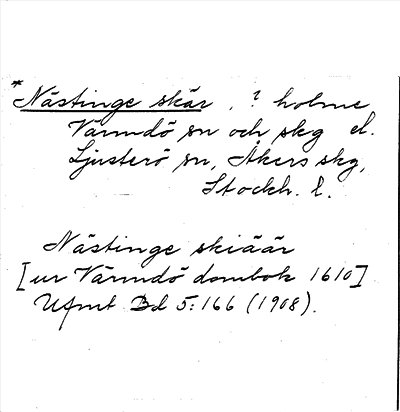 * Nästinge skär, ? holme
Värmdö sn och skg el.
Ljusterö sn, Åkers skg,
Stockh. l.
Nästinge skiäär
[ur Värmdö dombok 1610]
Ufmt Bd 5:166 (1908).